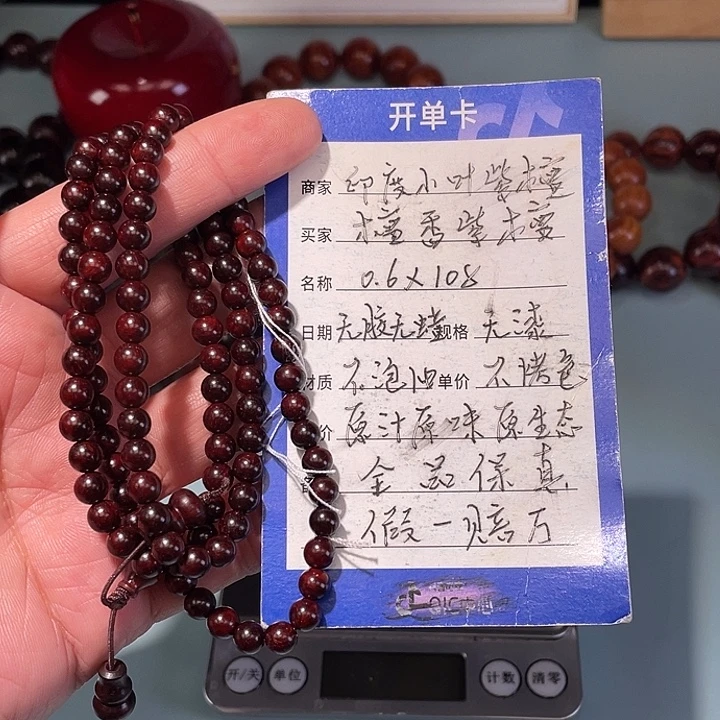 开单卡
商家 印度小叶紫檀
买家 檀香紫檀
名称 0.6×108
日期 无胶无蜡 规格 无漆
材质 不泡油 单价 不烘色
价 原汁原味 原生态
全品保真
假一赔万
开/关 单位 计数 清零